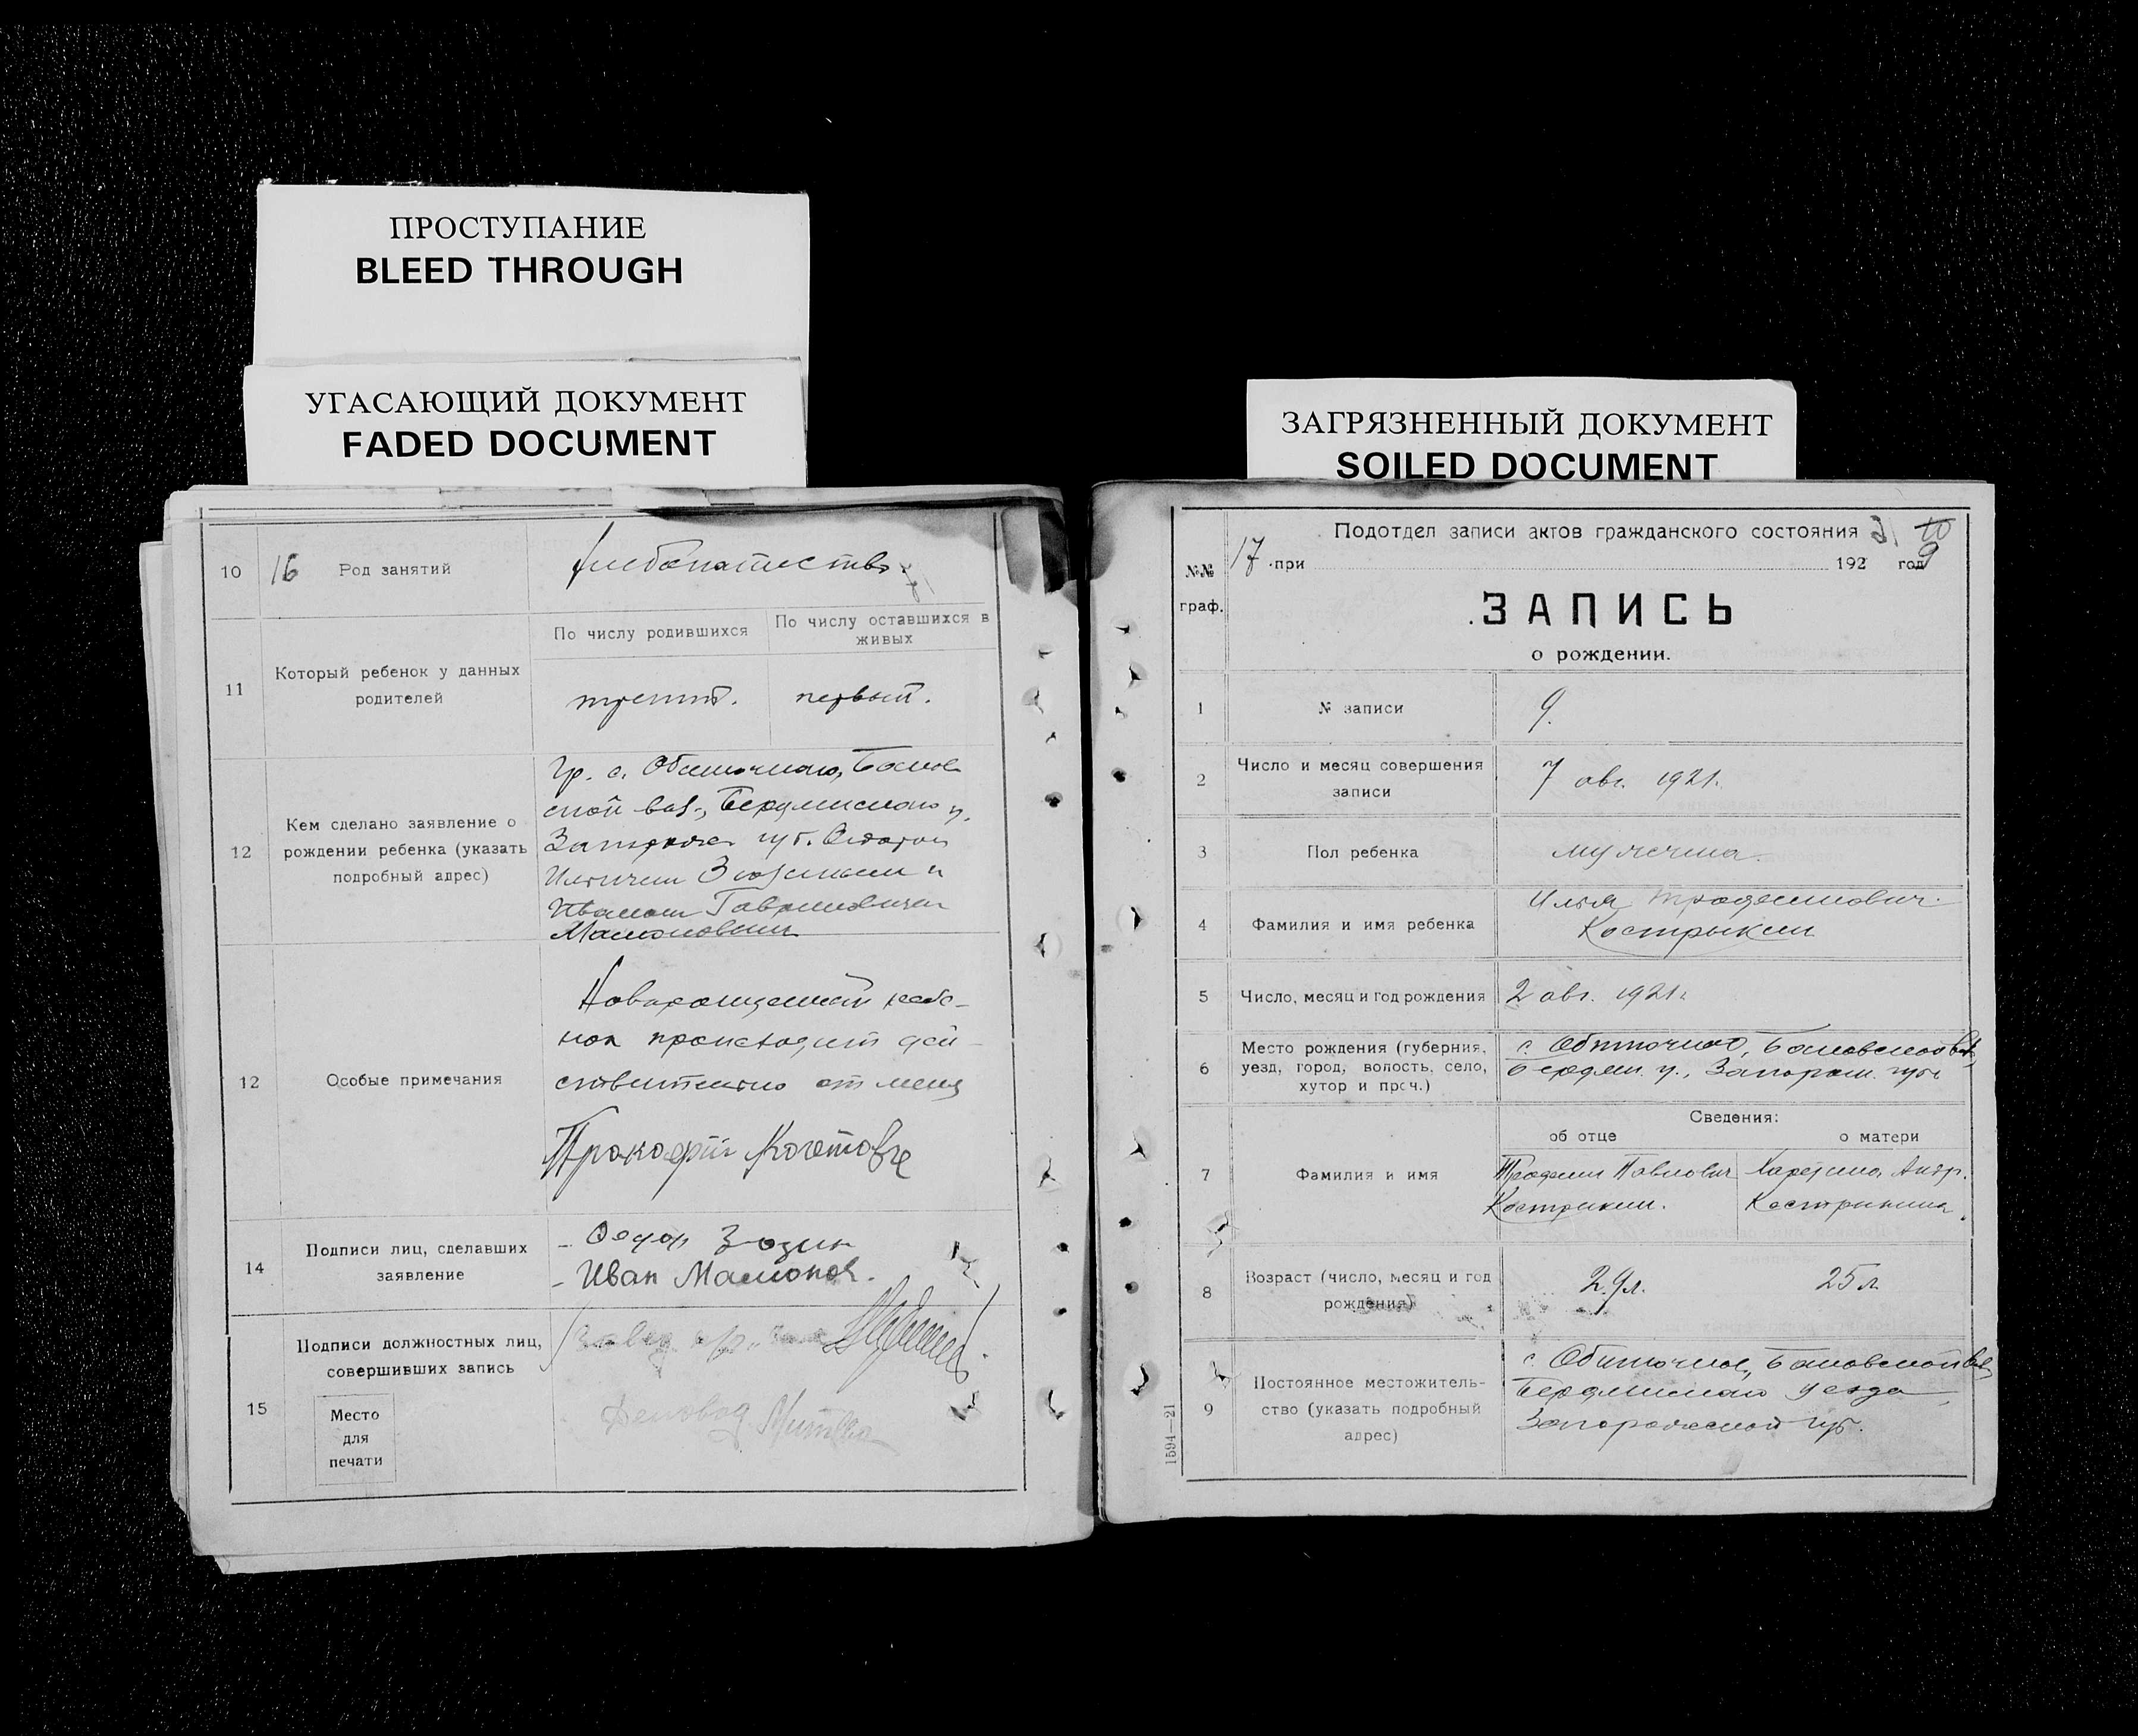 ПРОСТУПАНИЕ
BLEED THROUGH
УГАСАЮЩИЙ ДОКУМЕНТ
FADED DOCUMENT
ЗАГРЯЗНЕННЫЙ ДОКУМЕНТ
SOILED DOCUMENT
10
16
Род занятий
хлебопашество.
11
Который ребенок у данных
родителей
По числу родившихся
По числу оставшихся в
живых
третий.
первый.
12
Кем сделано заявление о
рождении ребенка (указать
подробный адрес)
Гр. с. Обиточного, Банов
ской вол., Бердянского у.
губ.
и
Иваном Гавриловичем
Мамоновым
12
Особые примечания
Новорожденный ребе-
нок происходит дей-
ствительно от меня
Прокофий
14
Подписи лиц, сделавших
заявление
- Федор Зюзин
- Иван Мамонов.
15
Подписи должностных лиц,
совершивших запись
Место
для
печати
Подотдел записи актов гражданского состояния
№№
граф.
17 при 192 год
9
ЗАПИСЬ
о рождении.
1
№ записи
9.
2
Число и месяц совершения
записи
7 авг. 1921.
3
Пол ребенка
мужчина.
4
Фамилия и имя ребенка
Илья
Кострыкин
5
Число, месяц и год рождения
2 авг. 1921.
6
Место рождения (губерния,
уезд, город, волость, село,
хутор и проч.)
с. Обиточного, Бановской вол,
Бердян. у., Запорож. губ.
7
Фамилия и имя
Сведения:
об отце
о матери
Павлович
Кострикин.
Андр.
Кострикина.
8
Возраст (число, месяц и год
рождения)
29 л.
25 л
9
Постоянное местожитель-
ство (указать подробный
адрес)
с. Обиточное, Бановской вол
Бердянского уезда,
Запорожской губ.
1594—21